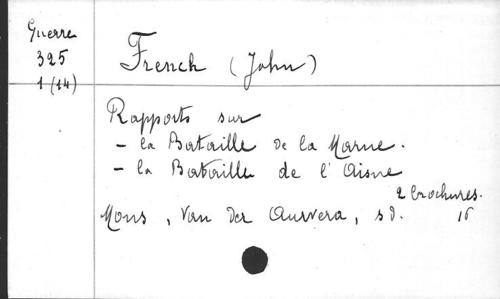 Guerre
325
1 (14)
French (John)
Rapports sur
- la Bataille de la Marne.
- la Bataille de l'Aisne
2 brochures.
Mons, Van der Auwera, s d. 16